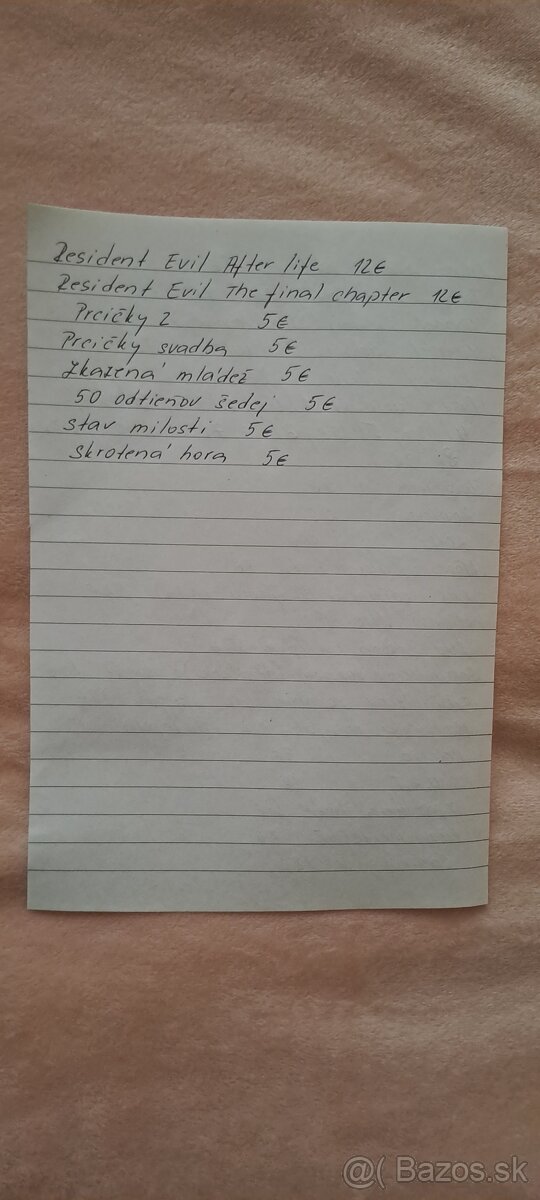 Resident Evil After life 12€
Resident Evil The final chapter 12€
Prcičky 2 5€
Prcičky svadba 5€
Zkazená mládež 5€
50 odtieňov šedej 5€
stav milosti 5€
skrotená hora 5€
@( Bazos.sk